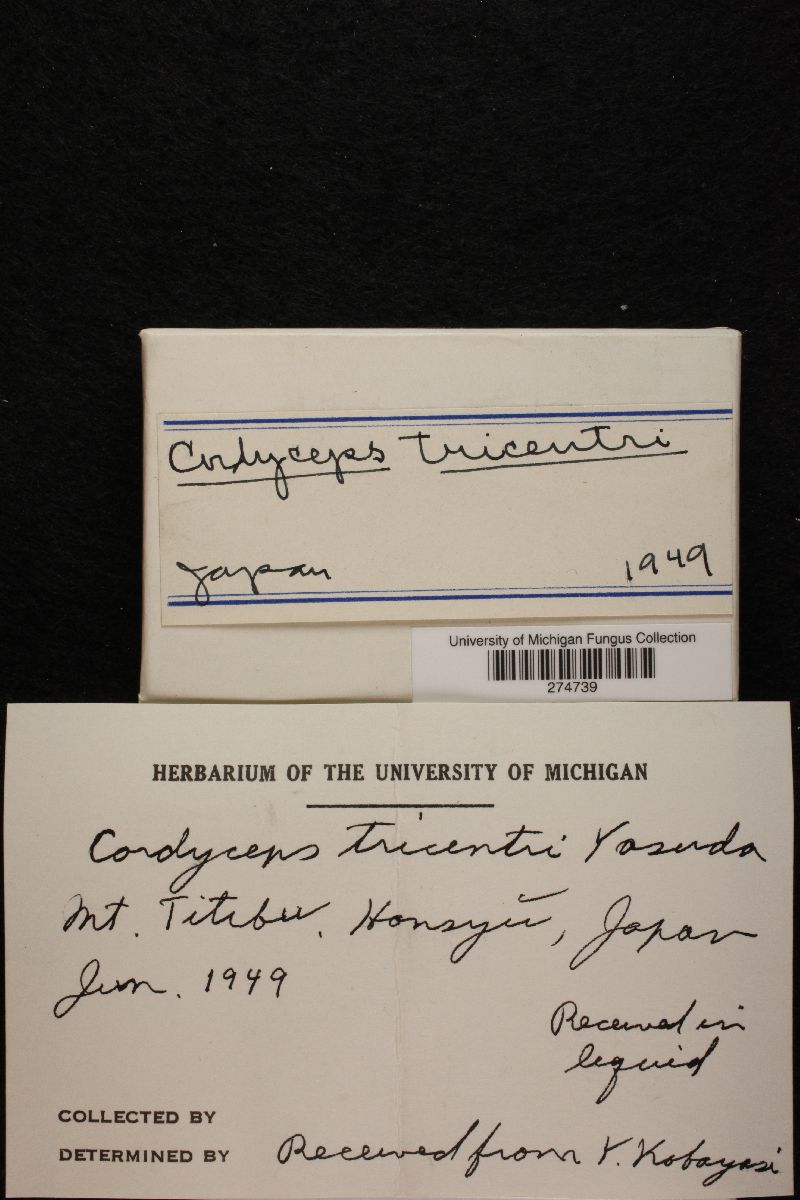 Cordyceps tricentri
Japan 1949
University of Michigan Fungus Collection
274739
HERBARIUM OF THE UNIVERSITY OF MICHIGAN
Cordyceps tricentri Yasuda
Mt. Titibu, Honsyū, Japan
Jun. 1949
Received in
liquid
COLLECTED BY
DETERMINED BY Received from Y. Kobayasi